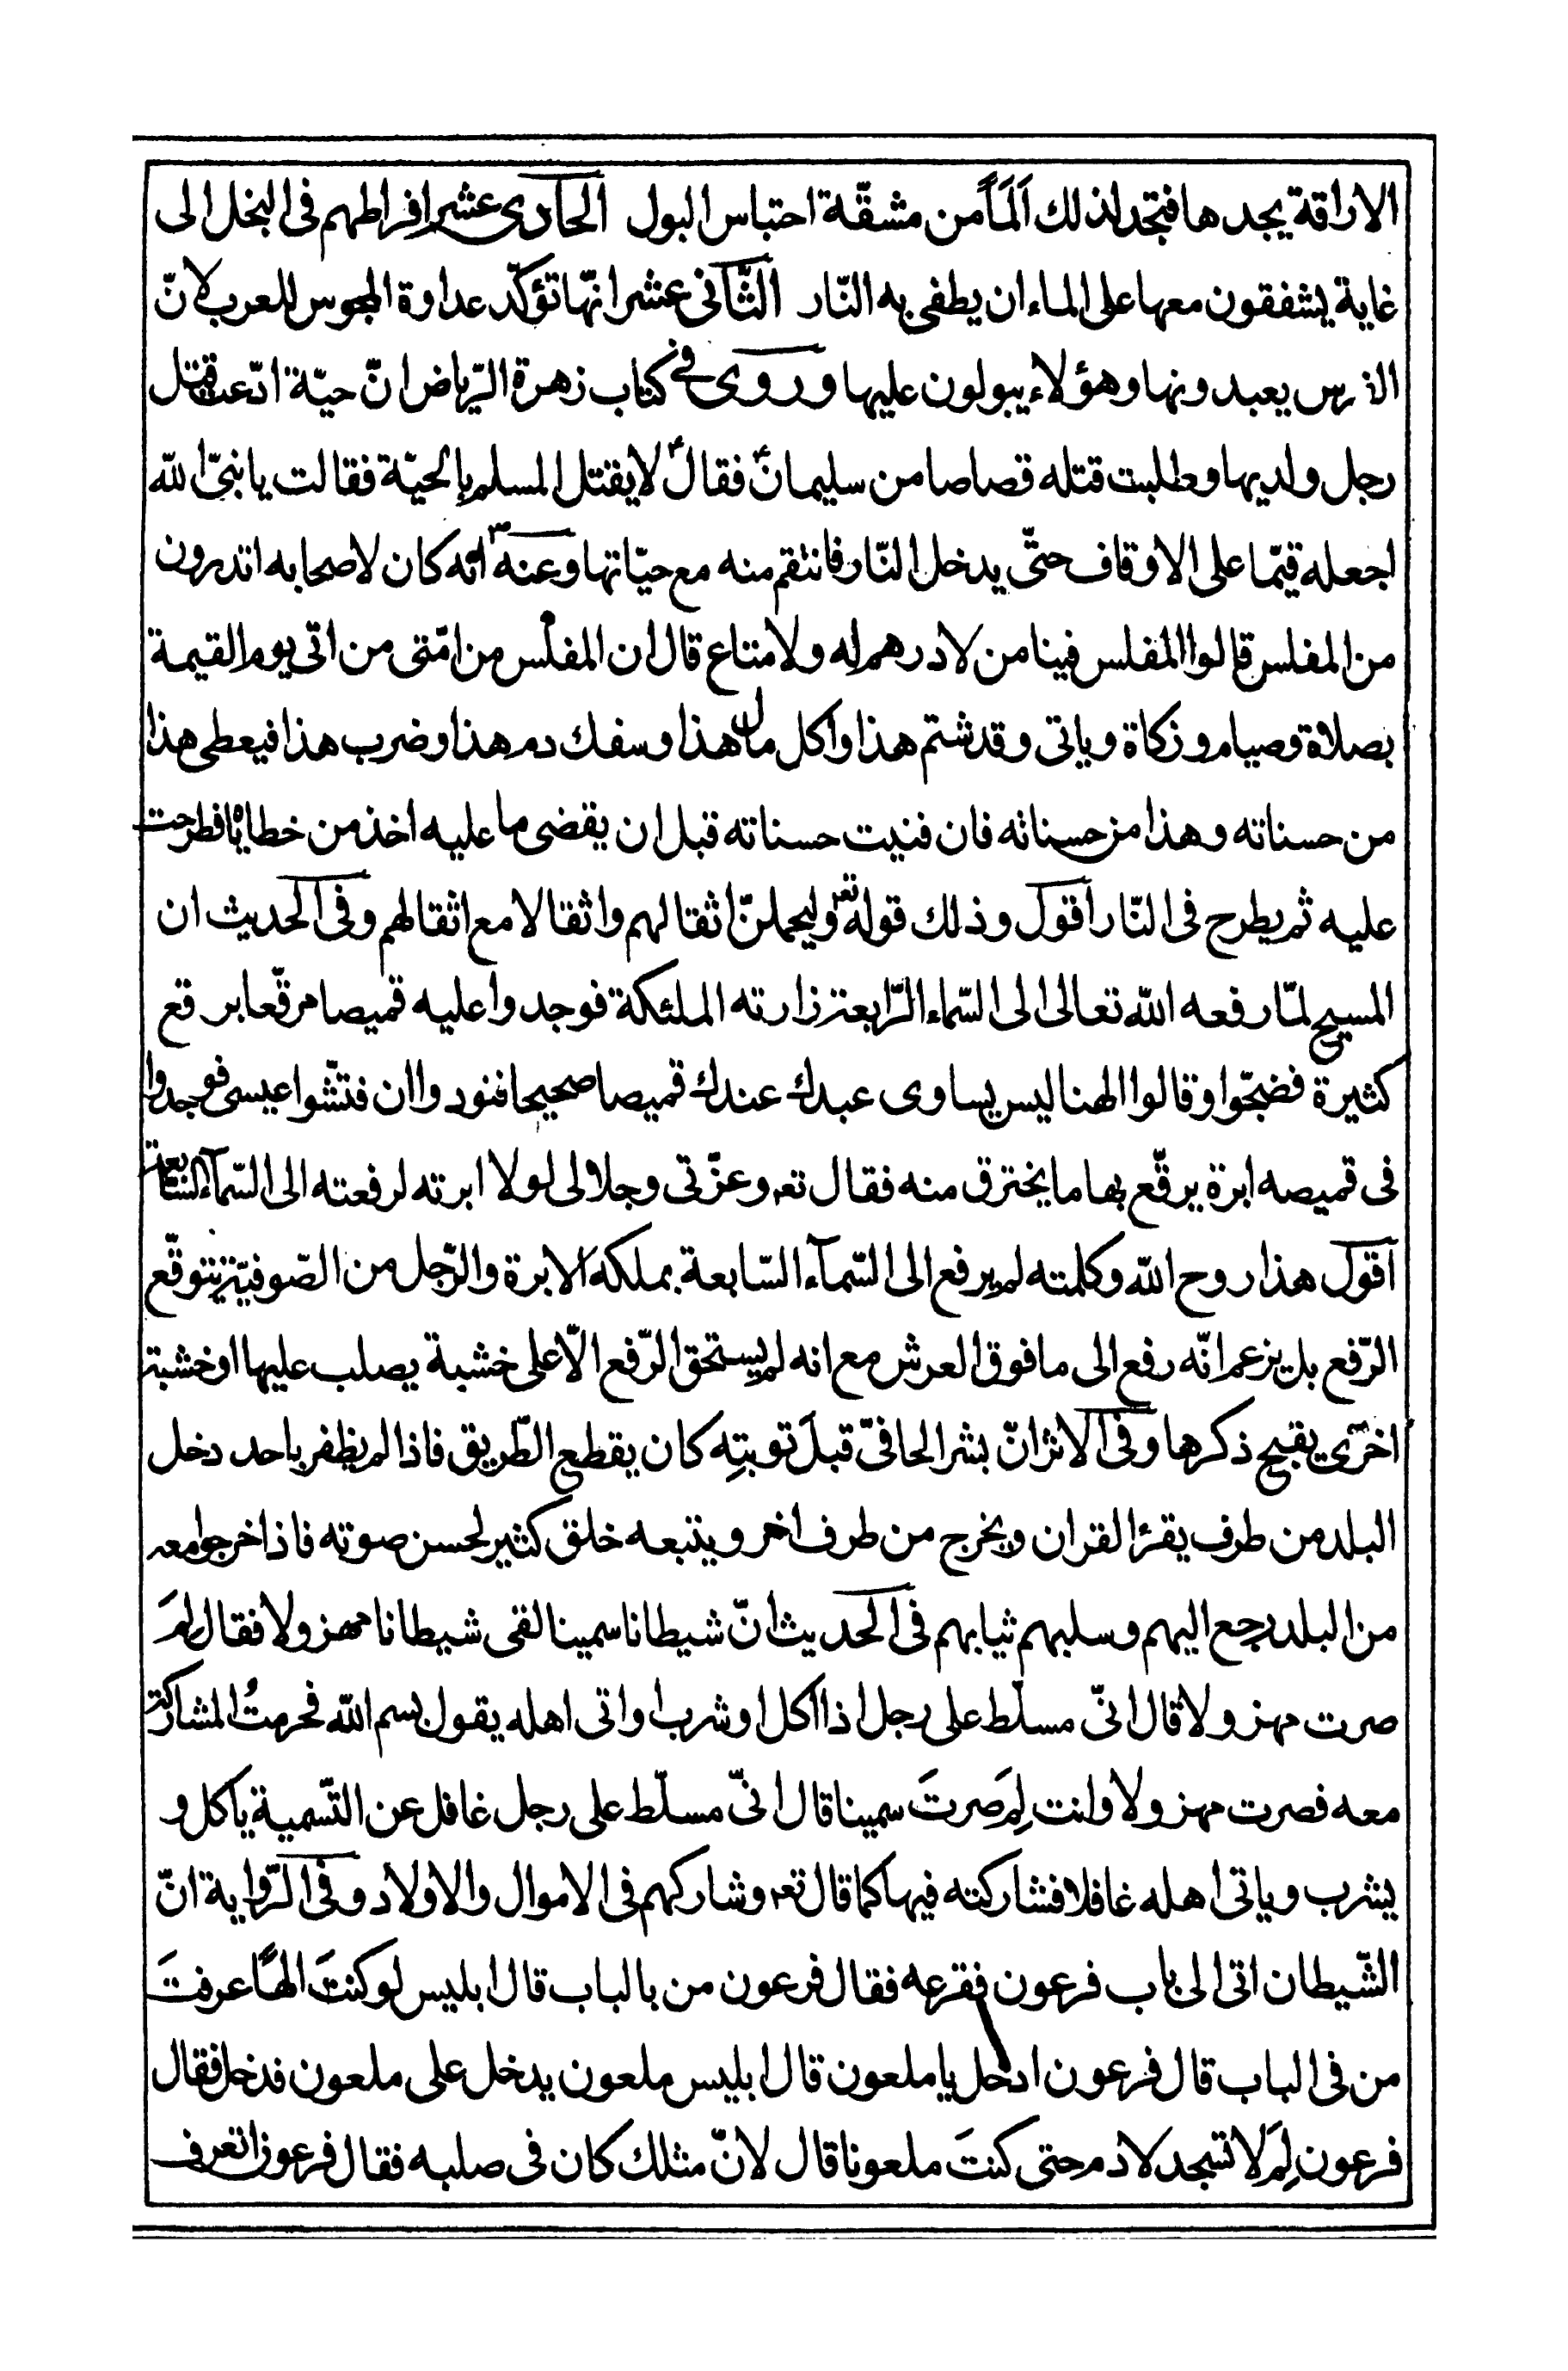 الاراقة يجدها فتجد لذلك اَلَمَاً من مشقّة احتباس البول الحادى عشر افراطهم فى البخل الى
غاية يشفقون معها على الماء ان يطفى به النّار الثّانى عشر انّها تؤكّد عداوة المجوس للعرب لانّ
الفرس يعبدونها وهؤلاء يبولون عليها وروى فى كتاب زهرة الرّياض انّ حيّة ادّعت قتل
رجل ولديها وطلبت قتله قصاصا من سليمان ع فقال ع لا يقتل المسلم بالحيّة فقالت يا نبىّ الله
اجعله قيّما على الاوقاف حتّى يدخل النّار فانتقم منه مع حيّاتها وعنه ص انّه كان لاصحابه اتدرون
من المفلس قالوا المفلس فينا من لا درهم له ولا متاع قال ان المفلس من امّتى من اتى يوم القيمة
بصلاة وصيام وزكاة وياتى وقد شتم هذا واكل مال هذا وسفك دم هذا وضرب هذا فيعطى هذا
من حسناته وهذا من حسناته فان فنيت حسناته قبل ان يقضى ما عليه اخذ من خطاياهم فطرحت
عليه ثم يطرح فى النّار اقول وذلك قوله تع وليحملنّ اثقالهم واثقالا مع اثقالهم وفى الحديث ان
المسيح لمّا رفعه الله تعالى الى السّماء الرّابعة زارته الملئكة فوجدوا عليه قميصا مرقّعا برقع
كثيرة فضجّوا وقالوا الهنا ليس يساوى عبدك عندك قميصا صحيحا فنودوا ان فتّشوا عيسى فوجدوا
فى قميصه ابرة يرقّع بها ما يخترق منه فقال تعه وعزّتى وجلالى لولا ابرته لرفعته الى السّمآء السّابعة
اقول هذا روح الله وكلمته لم يرفع الى السّمآء السّابعة بملكه الابرة والرّجل من الصّوفيّة يتوقّع
الرّفع بل يزعم انّه رفع الى ما فوق العرش مع انه لم يستحق الرّفع الّا على خشبة يصلب عليها او خشبة
اخرى يقبح ذكرها وفى الاثر انّ بشر الحافىّ قبلَ توبتِه كان يقطع الطّريق فاذا لم يظفر باحد دخل
البلد من طرف يقرء القران ويخرج من طرف اخر ويتبعه خلق كثير لحسن صوته فاذا خرجوا معه
من البلد رجع اليهم وسلبهم ثيابهم فى الحديث انّ شيطانا سمينا لقى شيطانا مهزولا فقال لِمَ
صرت مهزولا قال انّى مسلّط على رجل اذا اكل او شرب او اتى اهله يقول بسم الله فحرمتُ المشاركة
معه فصرت مهزولا وانت لِمَ صرتَ سمينا قال انّى مسلّط على رجل غافل عن التّسمية ياكل و
يشرب وياتى اهله غافلا فشاركته فيها كما قال تعه وشاركهم فى الاموال والاولاد وفى الرّواية انّ
الشّيطان اتى الى باب فرعون فقرعه فقال فرعون من بالباب قال ابليس لو كنتَ الهًا عرفتَ
من فى الباب قال فرعون ادخل يا ملعون قال ابليس ملعون يدخل على ملعون فدخل فقال
فرعون لِمَ لا تسجد لادم حتى كنتَ ملعونا قال لانّ مثلك كان فى صلبه فقال فرعون اتعرف